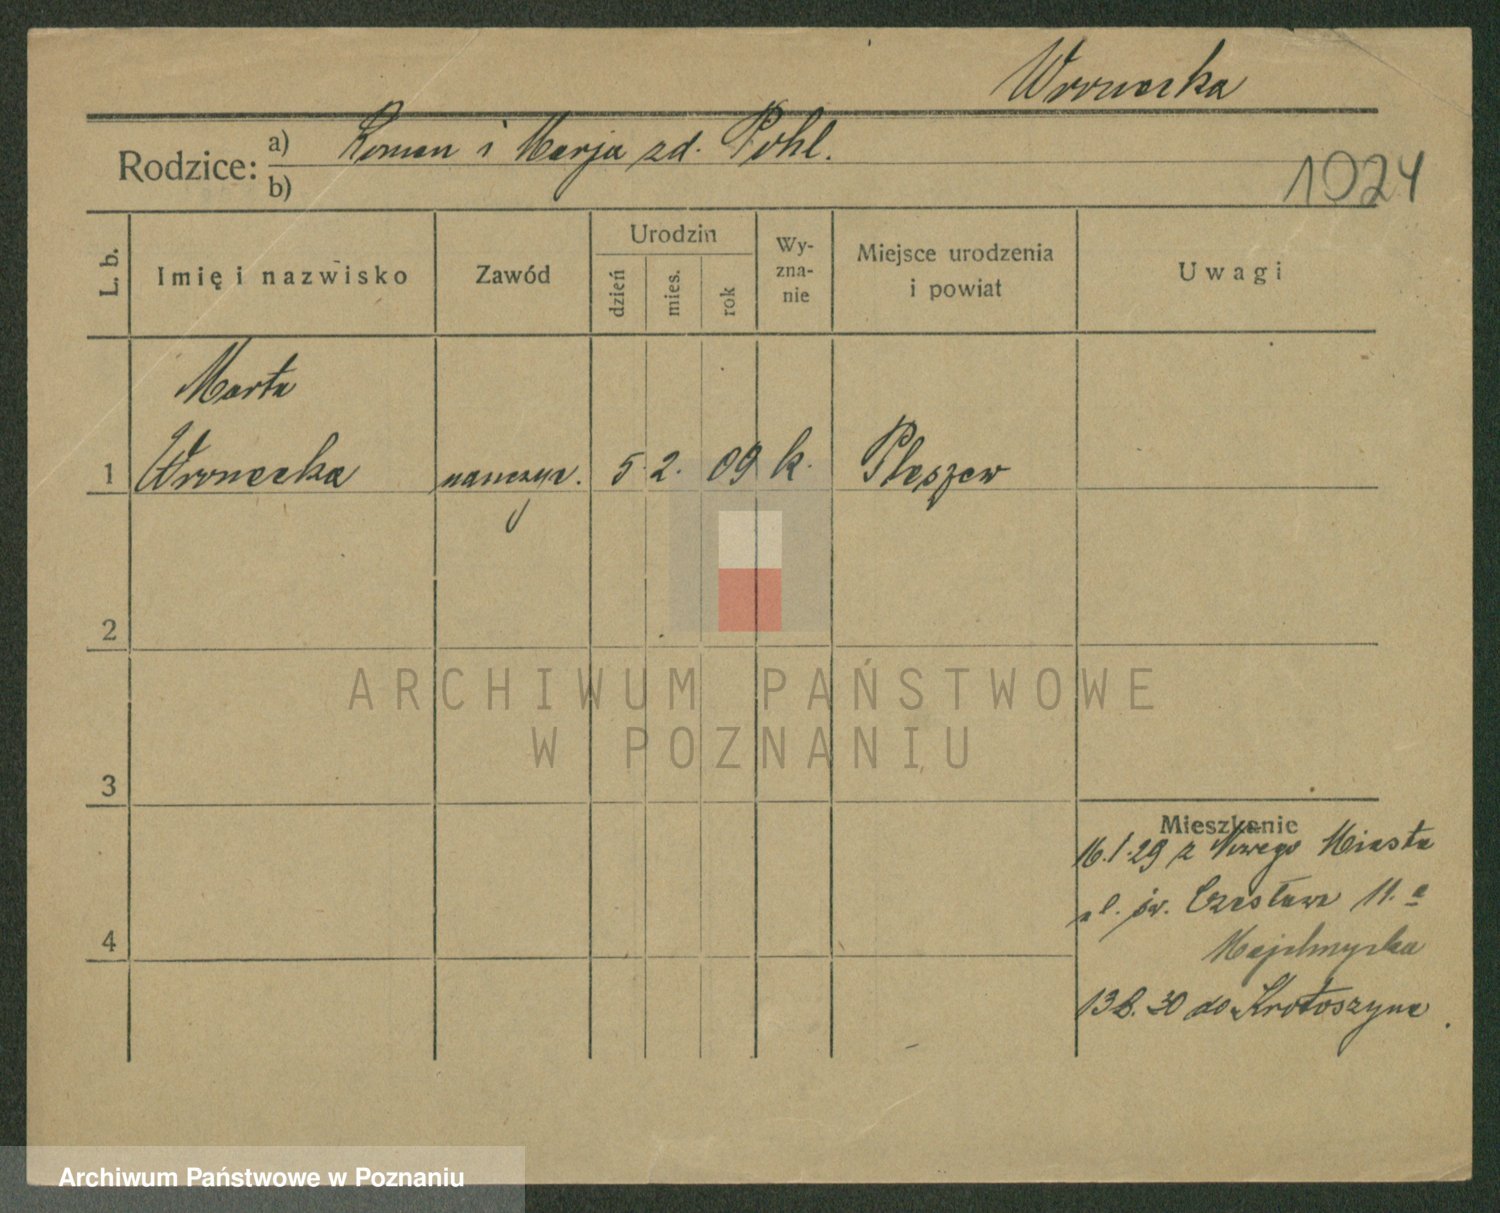 Wronecka
Rodzice: a) Roman i Marja zd. Pohl.
b)
1024
L. b.
Imię i nazwisko
Zawód
Urodzin
dzień
mies.
rok
Wy-
zna-
nie
Miejsce urodzenia
i powiat
Uwagi
Marta
1 Wronecka nauczyc. 5 2. 09 k. Pleszew
2
3
4
ARCHIWUM PAŃSTWOWE
W POZNANIU
Mieszkanie
16.1.29 z Nowego Miasta
ul. św. Czesława 11.a
13 8. 30 do Krotoszyna.
Archiwum Państwowe w Poznaniu